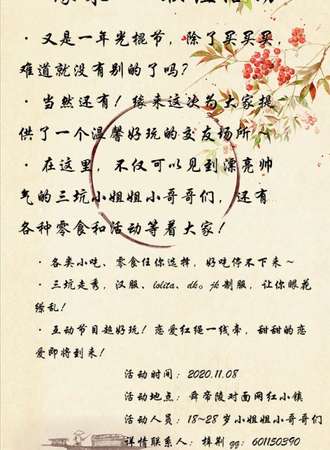 · 又是一年光棍节，除了买买买，
难道就没有别的了吗？
· 当然还有！缘来这次为大家提
供了一个温馨好玩的交友场所～
· 在这里，不仅可以见到漂亮帅
气的三坑小姐姐小哥哥们，还有
各种零食和活动等着大家！
· 各类小吃、零食任你选择，好吃停不下来～
· 三坑走秀，汉服、lolita、dk。jk制服，让你眼花
缭乱！
· 互动节目超好玩！恋爱红绳一线牵，甜甜的恋
爱即将到来！
活动时间：2020.11.08
活动地点：舜帝陵对面网红小镇
活动人员：18~28岁小姐姐小哥哥们
详情联系人：梓荆qq：601150390